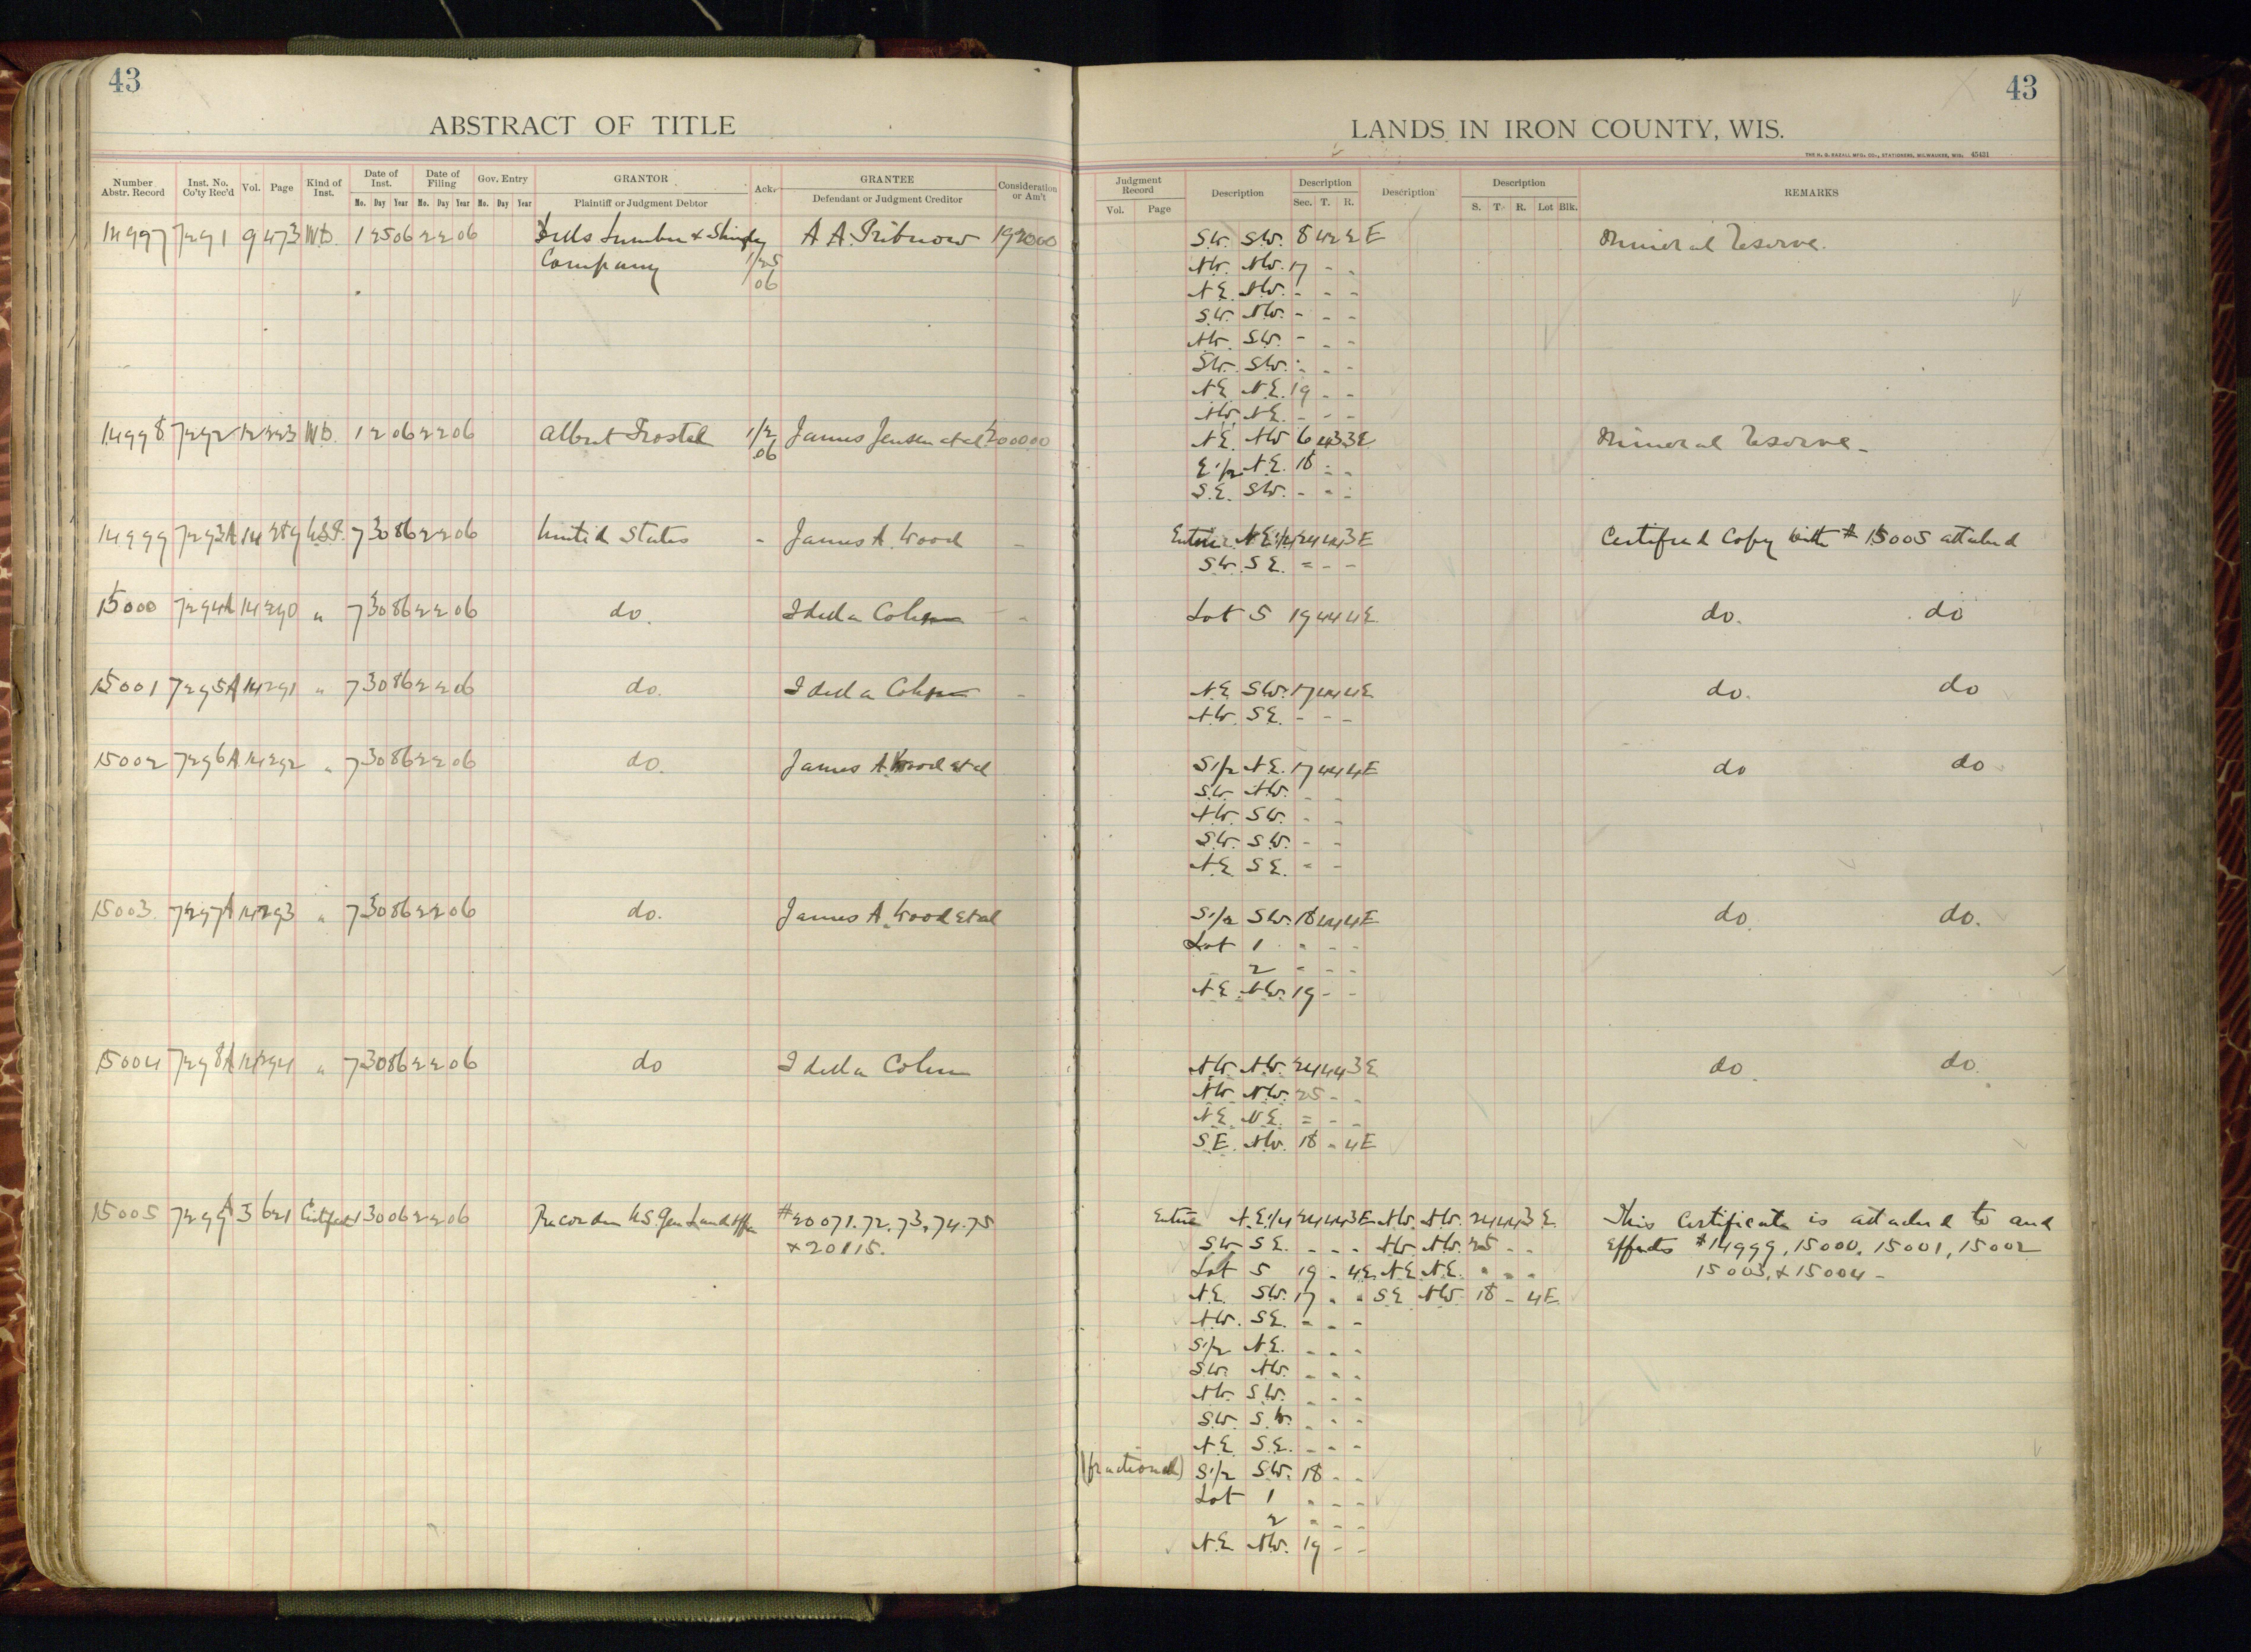 43
ABSTRACT OF TITLE
Number Abstr. Record | Inst. No. Co'ty Rec'd | Vol. | Page | Kind of Inst. | Date of Inst. Mo. Day Year | Date of Filing Mo. Day Year | Gov. Entry Mo. Day Year | GRANTOR Plaintiff or Judgment Debtor | Ack. | GRANTEE Defendant or Judgment Creditor | Consideration or Am't
14997 7291 9 473 W.D. 1 25 06 2 2 06 Lumber & Shingle A A. Pribnow 1920 00
Company 1/25
06
14998 7292 12 223 W.D. 1 2 06 2 2 06 Albert Trostel 1/2 James Jensen et al 2000 00
06
14999 7293A 14 289 U.S.P. 7 30 86 2 2 06 United States - James A. Wood -
15000 7294A 14 290 " 7 30 86 2 2 06 do. Idella Cohen -
15001 7295A 14 291 " 7 30 86 2 2 06 do. Idella Cohen -
15002 7296A 14 292 " 7 30 86 2 2 06 do. James A. Wood et al
15003 7297A 14 293 " 7 30 86 2 2 06 do. James A. Wood et al
15004 7298A 14 294 " 7 30 86 2 2 06 do Idella Cohen
15005 7299A 3 621 1 30 06 2 2 06 Recorder U.S. Gen Land Office #20071.72.73.74.75
+ 20115.
43
LANDS IN IRON COUNTY, WIS.
THE H. G. RAZALL MFG. CO., STATIONERS, MILWAUKEE, WIS. 45421
Judgment Record Vol. Page | Description | Description Sec. T. R. | Description | Description S. T. R. Lot Blk. | REMARKS
S.W. S.W. 8 42 2 E Mineral Reserve.
N.W. N.W. 17 - -
N.E. N.W. - - -
S.W. N.W. - - -
N.W. S.W. - - -
S.W. S.W. - - -
N.E. N.E. 19 - -
N.W. N.E. - - -
N.E. N.W. 6 43 3 E Mineral Reserve -
E 1/2 N.E. 18 - -
S.E. S.W. - - -
Entire N.E. 1/4 24 44 3 E Certified Copy with # 15005 attached
S.W. S.E. - - -
Lot 5 19 44 4 E. do. do
N.E. S.W. 17 44 4 E do. do
N.W. S.E. - - -
S 1/2 N.E. 17 44 4 E do do
S.W. N.W. - -
N.W. S.W. - -
S.W. S.W. - -
N.E. S.E. - -
S 1/2 S.W. 18 44 4 E do. do.
Lot 1 - - -
2 - - -
N.E. N.W. 19 - -
N.W. N.W. 24 44 3 E do. do.
N.W. N.W. 25 - -
N.E. N.E. - - -
S.E. N.W. 18 - 4 E
Entire N.E. 1/4 24 44 3 E N.W. N.W. 24 44 3 E This Certificate is attached to and
S.W. S.E. - - - N.W. N.W. 25 - - Effects # 14999, 15000, 15001, 15002
Lot 5 19 - 4 E. N.E. N.E. - - - 15003, & 15004 -
N.E. S.W. 17 - - S.E. N.W. 18 - 4 E
N.W. S.E. - - -
S 1/2 N.E. - - -
S.W. N.W. - - -
N.W. S.W. - - -
S.W. S.W. - - -
N.E. S.E. - - -
(fractional) S 1/2 S.W. 18 - -
Lot 1 - - -
2 - - -
N.E. N.W. 19 - -